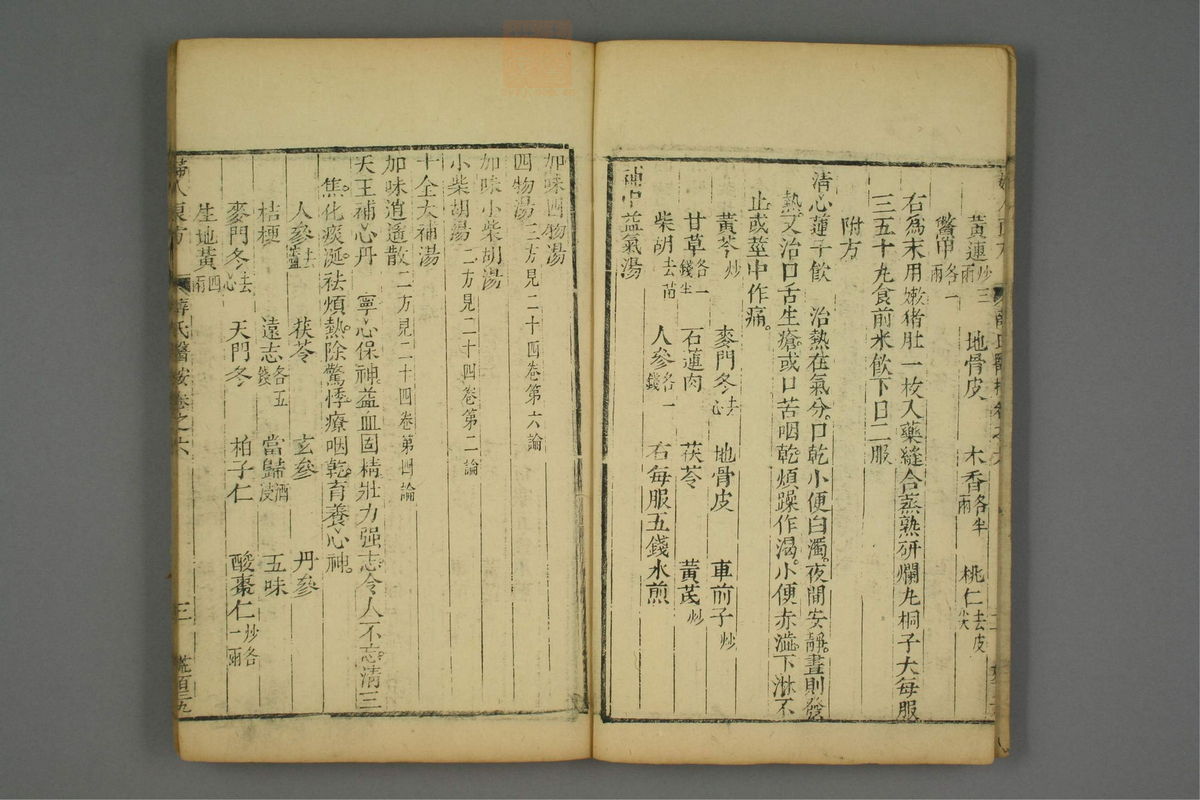 黃連炒三兩　地骨皮　木香各半兩　桃仁去皮尖
鱉甲各一兩
右爲末用嫩猪肚一枚入藥縫合蒸熟研爛丸桐子大每服
三五十丸食前米飲下日二服
附方
清心蓮子飲　治熱在氣分。口乾小便白濁。夜間安靜。晝則發
熱。又治口舌生瘡。或口苦咽乾煩躁作渴。小便赤澁。下淋不
止。或莖中作痛。
黃芩炒　麥門冬去心　地骨皮　車前子炒
甘草各一錢半　石蓮肉　茯苓　黃芪炒
柴胡去苗　人參各一錢　右每服五錢水煎
補中益氣湯
加味四物湯
四物湯二方見二十四卷第六論
加味小柴胡湯
小柴胡湯二方見二十四卷第二論
十全大補湯
加味逍遙散二方見二十四卷第四論
天王補心丹　寧心保神益血固精壯力强志。令人不忘。清三
焦。化痰涎。祛煩熱。除驚悸。療咽乾。育養心神。
人參去蘆　茯苓　玄參　丹參
桔梗　遠志各五錢　當歸酒浸　五味
麥門冬去心　天門冬　柏子仁　酸棗仁炒各一兩
生地黃四兩
婦人良方　薛氏醫按卷之六　三